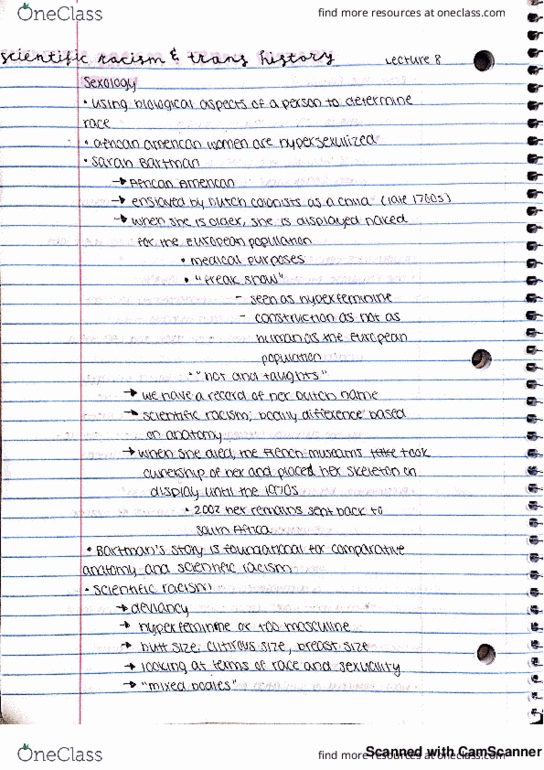 OneClass
find more resources at oneclass.com
scientific racism & trans history
Lecture 8
Sexology
• using biological aspects of a person to determine
race
• african american women are hypersexulized
• Sarah Bartman
→ African American
→ enslaved by Dutch colonists as a child (late 1700s)
→ when she is older, she is displayed naked
for the European population
• medical purposes
• "freak show"
- seen as hyperfeminine
- construction as not as
human as the European
population
• "hot and taughts"
→ we have a record of her Dutch name
→ scientific racism; bodily difference based
on anatomy
→ when she died, the French museums take took
ownership of her and placed her skeleton on
display until the 1970s
• 2002 her remains sent back to
South Africa
• Bartman's story is foundational for comparative
anatomy and scientific racism
• scientific racism
→ deviancy
→ hyperfeminine or too masculine
→ butt size, clitirous size, breast size
→ looking at terms of race and sexuality
→ "mixed bodies"
OneClass
find more resources at oneclass.com
Scanned with CamScanner